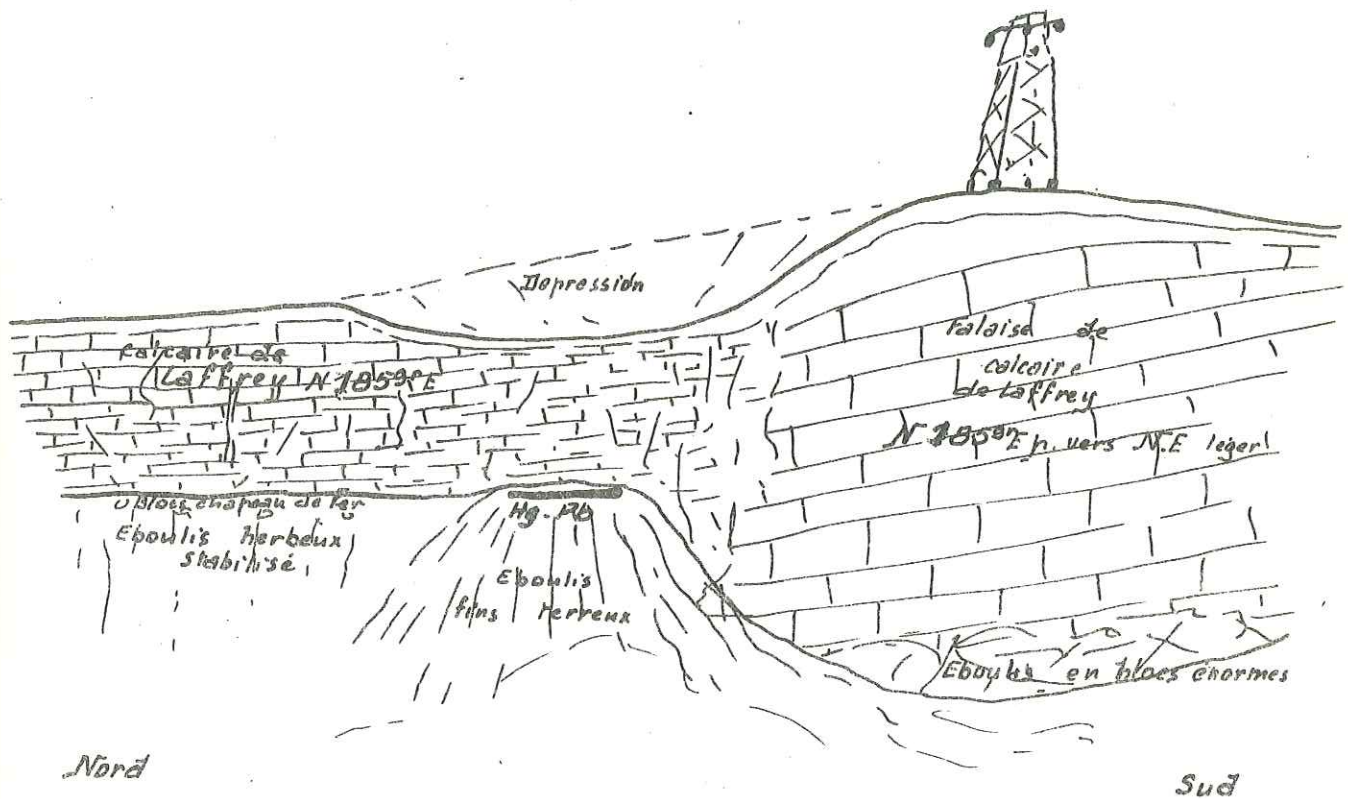 Dépression
Calcaire de
Laffrey N 185gr E
Falaise de
calcaire
de Laffrey
N 185gr E p. vers N.E léger
Blocs chapeau de fer
Eboulis herbeux
stabilisé
Hg-Pb
Eboulis
fins terreux
Eboulis en blocs énormes
Nord
Sud